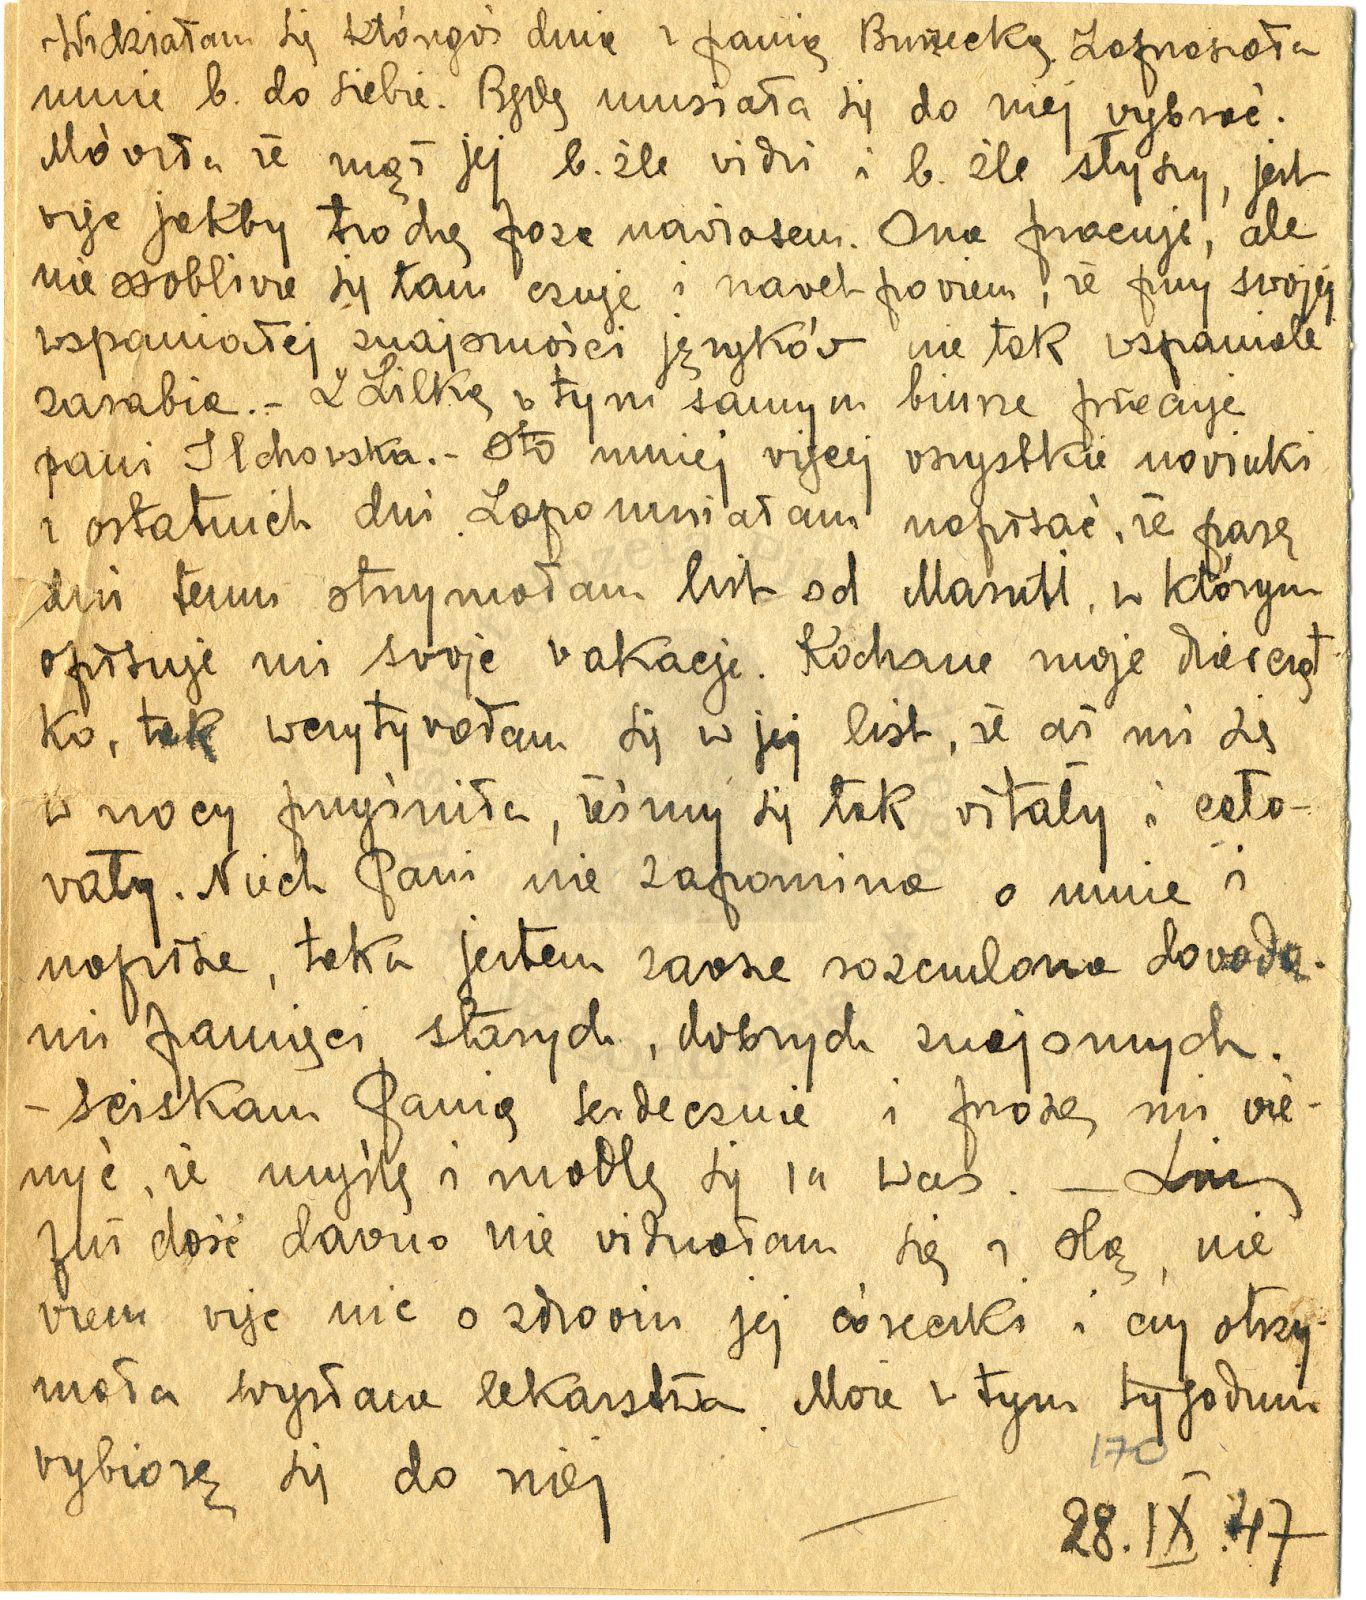 Widziałam się któregoś dnia z panią Burzecką. Zapraszała
mnie b. do siebie. Będę musiała się do niej wybrać.
Mówiła że mąż jej b. źle widzi i b. źle słyszy, jest
więc jakby trochę poza nawiasem. Ona pracuje, ale
nieosobliwie się tam czuje i nawet powiem, że przy swojej
wspaniałej znajomości języków nie tak wspaniale
zarabia. – Z Lilką w tym samym biurze pracuje
pani Ilchowska. – Oto mniej więcej wszystkie nowinki
z ostatnich dni. Zapomniałam napisać, że parę
dni temu otrzymałam list od Maruli, w którym
opisuje mi swoje wakacje. Kochane moje dzieciąt-
ko, tak wczytywałam się w jej list, że aż mi się
w nocy przyśniła, żeśmy się tak witały i cało-
wały. Niech Pani nie zapomina o mnie i
napisze, taka jestem zawsze rozczulona dowoda-
mi pamięci starych, dobrych znajomych.
– Ściskam Panią serdecznie i proszę mi wie-
rzyć, że myślę i modlę się za Was. –
Już dość dawno nie widziałam się z Olą, nie
wiem więc nic o zdrowiu jej córeczki i czy otrzy-
mała wysłane lekarstwa. Może w tym tygodniu
wybiorę się do niej
170
28.IX.47